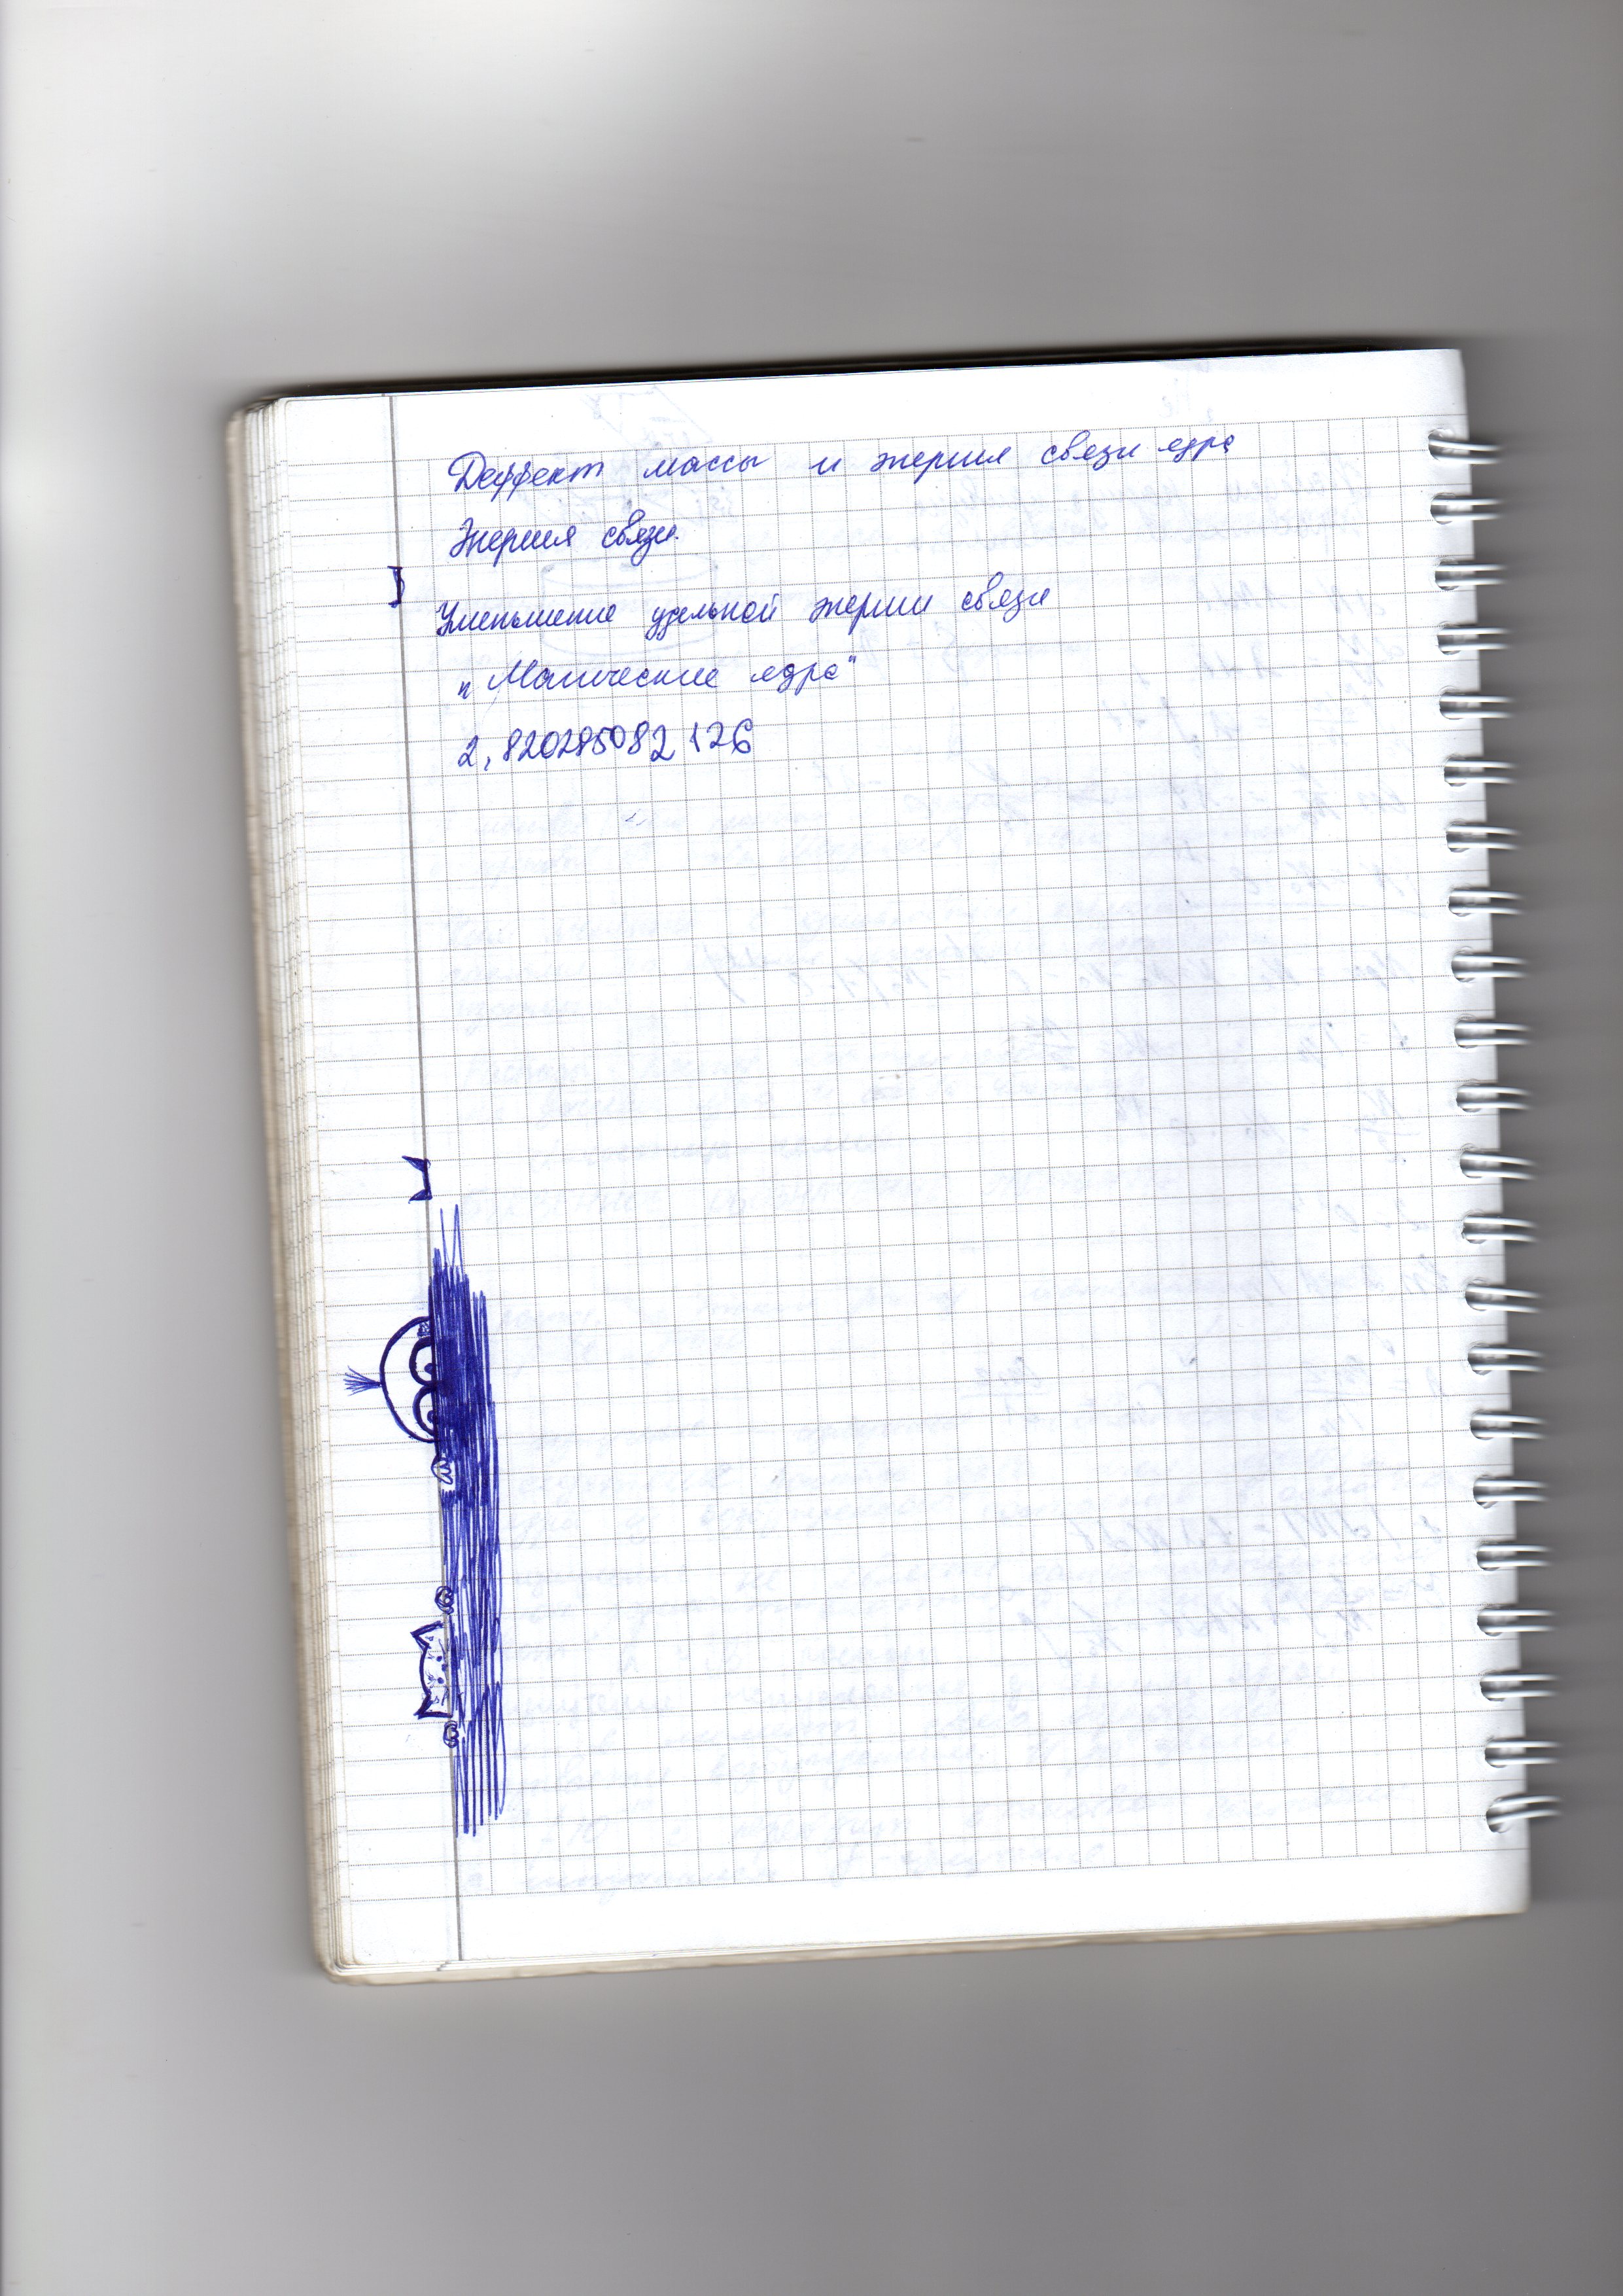 Деффект массы и энергия связи ядра
Энергия связи.
Уменьшение удельной энергии связи
„Магические ядра"
2, 8 20 28 50 82 126